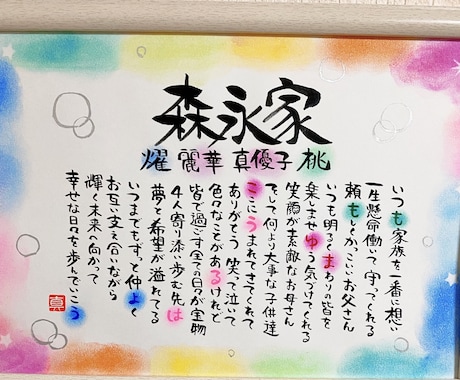 森永家
耀 麗華 真優子 桃
いつも家族を一番に想い
一生懸命働いて守ってくれる
頼もしくかっこいいお父さん
いつも明るくまわりの皆を
楽しませゆう気づけてくれる
笑顔が素敵なお母さん
そして何より大事な子供達
ここにうまれてきてくれて
ありがとう 笑って泣いて
色々なことがあるけれど
皆で過ごす全ての日々が宝物
4人寄り添い歩む先は
夢と希望が溢れてる
いつまでもずっと仲よく
お互い支え合いながら
輝く未来へ向かって
幸せな日々を歩んでいこう
真